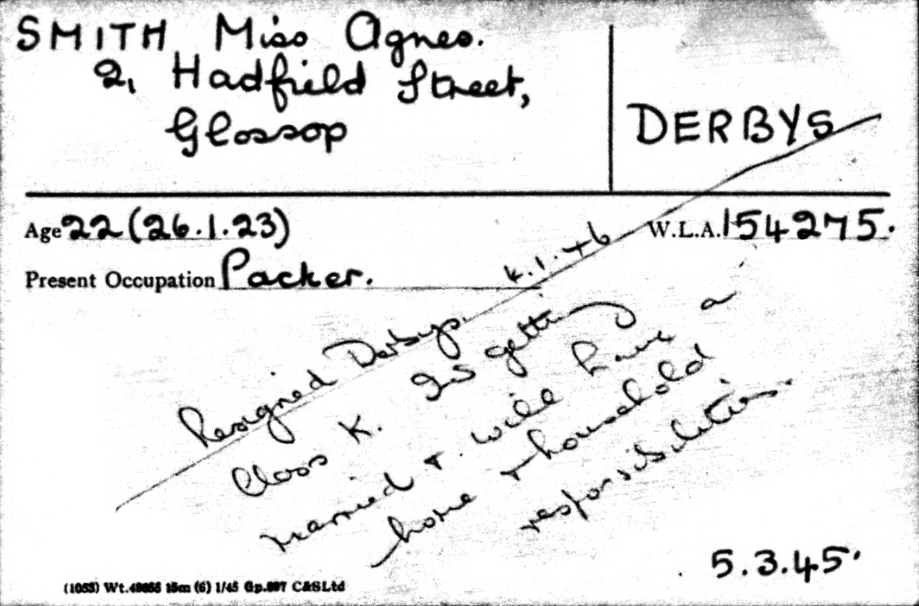 SMITH, Miss Agnes.
2, Hadfield Street,
Glossop
DERBYS
Age 22 (26.1.23)
W.L.A. 154275.
Present Occupation Packer.
Resigned Derbys. 4.1.46
Class K. Is getting
married & will have a
home & household
responsibilities.
5.3.45.
(1053) Wt. 15m (6) 1/45 Gp. C&SLtd